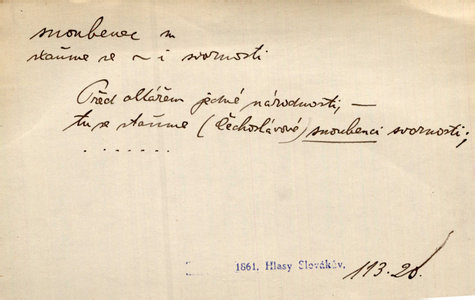 snoubenec m
staňme se ~ i svornosti
Před oltářem jedné národnosti, —
tu se staňme (Čechoslávové) snoubenci svornosti;
. . . . . . .
1861. Hlasy Slovákův. 113.26.